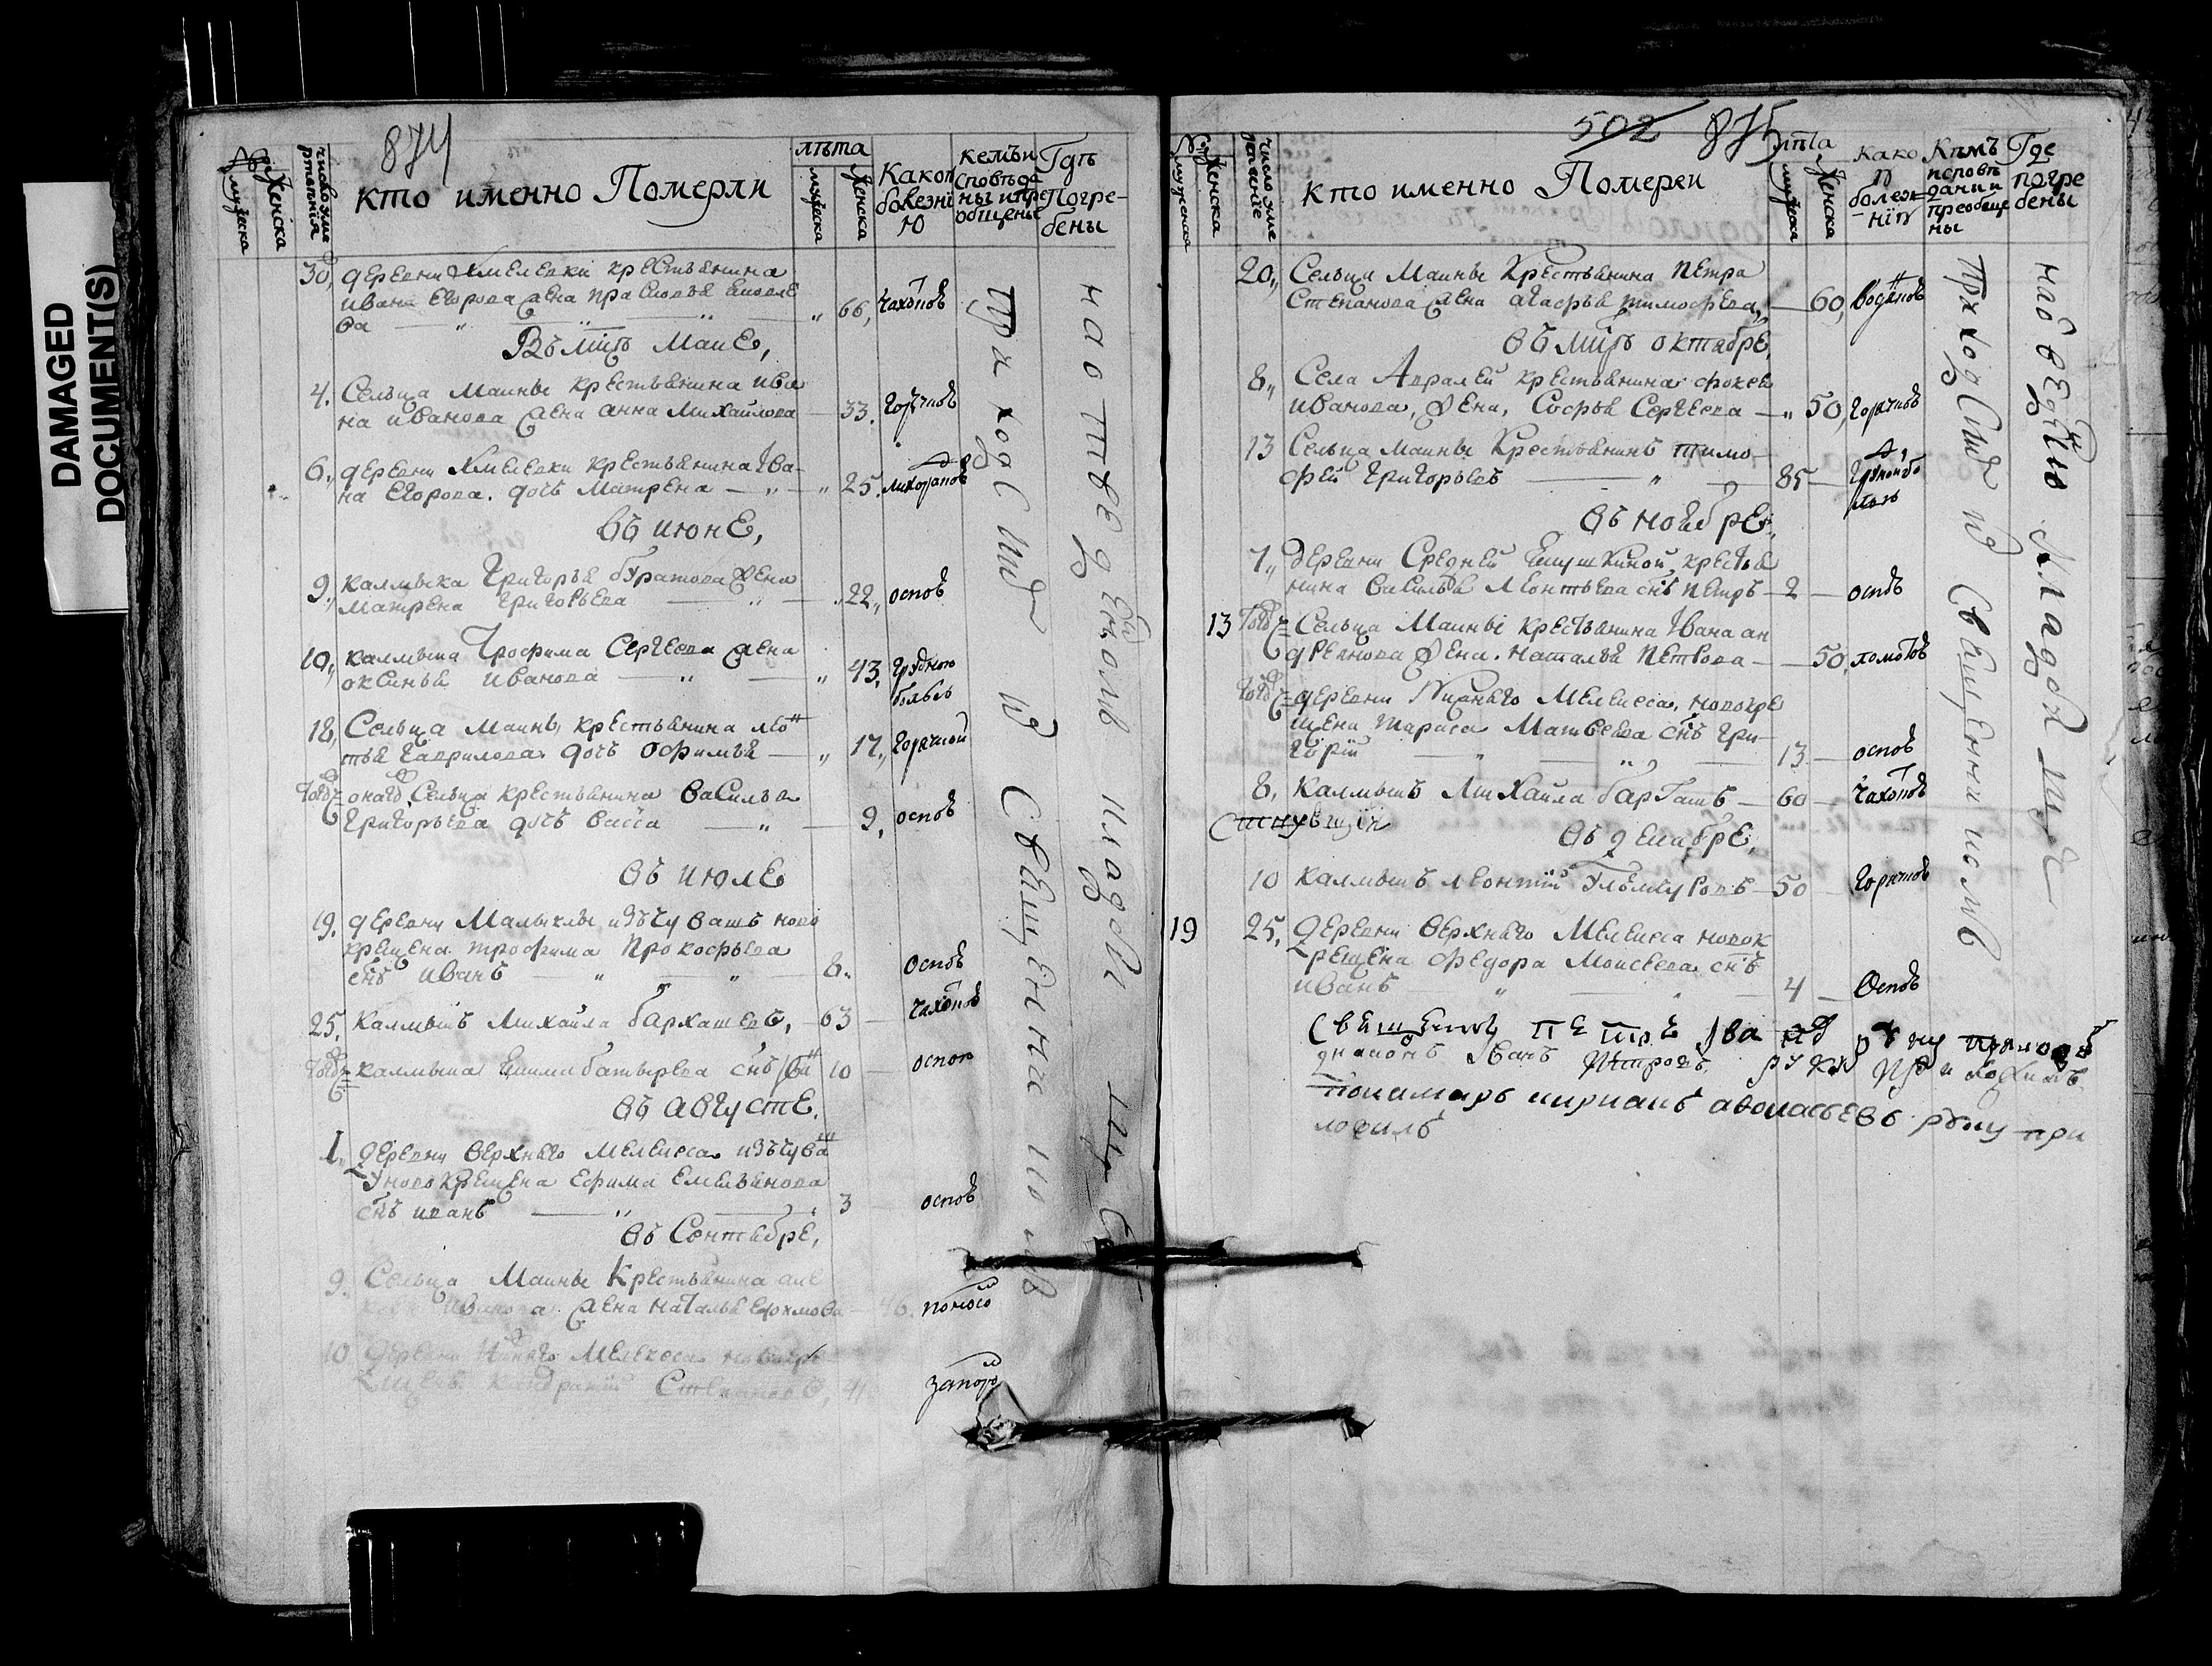 DAMAGED
DOCUMENT(S)
874
№
мужеска
Женска
число уме
ртвтвнїя
кто именно Померли
лѣта
мужеска
Женска
Какою
болезнї
Ю
кемъ и
споведа
ны и прі
общены
Гдѣ
Погре-
бены
30, деревни Хмелевки крестьянина
Ивана Егорова жена Прасковья
ва 66, чахотков
Въ мцѣ Маие,
4. Сельца Маины крестьянина Ива
на Иванова жена Анна Михайлова 33. горячков
6, деревни Хмелевки крестьянина Ива-
на Егорова. дочь Матрена 25. лихорадков
въ июне,
9, калмыка Григорья Буратова жена
Матрена Григорьева 22, оспов
10, калмыка Трофима Сергеева жена
Оксинья Иванова 43, грудною
болью
18, Сельца Маины, крестьянина Лео
тья Гаврилова дочь Офимья 17, горячкой
Тогож онагож Сельца крестьянина Василья
Григорьева дочь Васса 9, оспов
въ июле
19. деревни Малыклы изъ чувашъ ново
крещена Трофима Прокофьева
снъ Иванъ 8. Оспов
25. Калмыкъ Михайла 63 чахотков
Тогож калмыка Батырева снъ 10 оспою
въ августе.
1, деревни Верхнего Мелекеса изъ чува
новокрещена Ефима Емельянова
снъ Иванъ 3 оспов
въ Сентебре,
9. Сельца Маины Крестьянина Але
Иванова жена Наталья Ефимова 46. поносо
10 деревни Мелекеса новокре
Кондратий Степановъ, запоро
приходскимъ священникомъ
на отведеномъ кладбище
502 875
№
мужеска
Женска
число уме
ртвенїе
кто именно Померли
лѣта
мужеска
Женска
како
ю
болез-
нїю
Кемъ
исповѣ
даны и
преобще
ны
Где
погре
бены
20, Сельца Маины Крестьянина Петра
Степанова жена Агафья Тимофеева, 60, водянов
въ мцѣ октябре,
8, Села крестьянина Фокея
Иванова, жена, Софья Сергеева 50, горячков
13 Сельца Маины Крестьянинъ Тимо-
фей Григорьевъ 85 грудною бо
лезн
въ ноябре,
7, деревни Средней крестья
нина Василья Леонтьева снъ Петръ 2 оспов
13 Тогож Сельца Маины крестьянина Ивана Ан
дреянова жена. Наталья Петрова 50, ломотов
Тогож деревни Нижнего Мелекеса, новокре
щена Тараса Матвеева снъ Гри-
горїй 13 оспов
8, Калмыкъ Михайла 60 чахотков
въ декабре,
10 Калмыкъ Леонтїй 50 горячков
19 25, деревни Верхнего Мелекеса новок
рещена Федора Моисеева снъ
Иванъ 4 Оспов
приходскимъ священникомъ
на отведеномъ кладбище
Священникъ Петръ Ивановъ руку приложи
диаконъ Иванъ Петровъ руку приложилъ
пономарь Кириакъ Афонасьевъ руку при
ложилъ